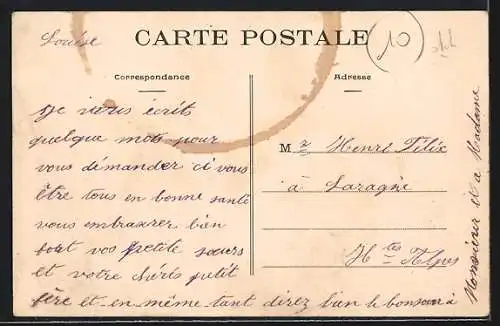 Louise
CARTE POSTALE
10
Correspondance
Adresse
Je vous écrits
quelque mots pour
vous démander ci vous
être tous en bonne santé
vous embrasser bien
fort vos petite sœurs
et votre petit
fère et en même tant direz bien le bonsoir à
Monsieur et à Madame
M r Henri Félix
à Laragne
H tes Alpes